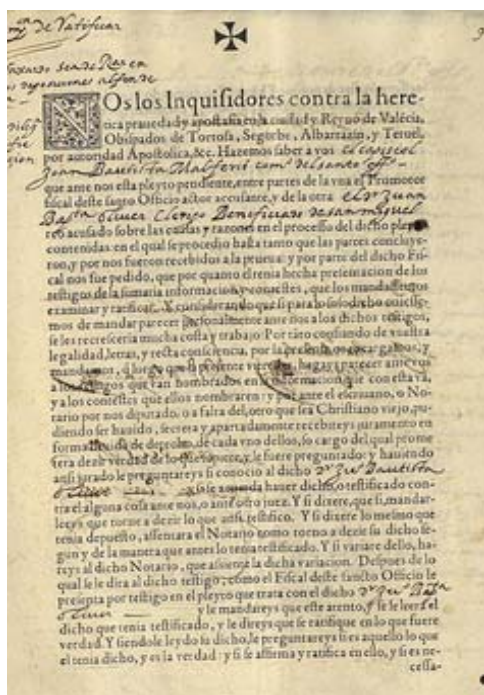 de Ratificar
NOs los Inquisidores contra la here-
tica prauedad y apostasia en la ciudad y Reyno de Valécia,
Obispados de Tortosa, Segorbe, Albarrazin, y Teruel,
por autoridad Apostolica, &c. Hazemos saber a vos
Juan Bautista com.º del santo off.º
que ante nos esta pleyto pendiente, entre partes de la vna el Promotor
fiscal deste santo Officio actor acusante, y de la otra el Dr Juan
Bap.ta oliuer Clerigo Beneficiado de san miguel
reo acusado sobre las causas y razones en el processo del dicho pleyto
contenidas: en el qual se procedio hasta tanto que las partes concluye-
ron, y por nos fueron recebidos a la prueua: y por parte del dicho Fis-
cal nos fue pedido, que por quanto el tenia hecha presentacion de los
testigos de la sumaria informacion, y contestes, que los mandassemos
examinar y ratificar. Y considerando que si para lo solo dicho vuiesse-
mos de mandar parecer personalmente ante nos a los dichos testigos,
se les recresceria mucha costa y trabajo: Por táto confiando de vuestra
legalidad, letras, y recta consciencia, por la presente os encargamos, y
mandamos, q luego que la presente vieredes, hagays parecer ante vos
a los testigos que van nombrados en la informacion que con esta va,
y a los contestes que ellos nombraren: y por ante el escriuano, o No-
tario por nos diputado, o a falta del, otro que sea Christiano viejo, pu-
diendo ser hauido, secreta y apartadamente recebireys juramento en
forma deuida de derecho, de cada vno dellos, so cargo del qual prome
tera dezir verdad de lo que supiere, y le fuere preguntado: y hauiendo
ansi jurado le preguntareys si conocio al dicho Dr Ju.º Bautista
oliuer si se acuerda hauer dicho, o testificado con-
tra el alguna cosa ante nos, o ante otro juez. Y si dixere, que si, mandar-
leeys que torne a dezir lo que ansi testifico. Y si dixere lo mesmo que
tenia depuesto, assentara el Notario como torno a dezir su dicho se-
gun y de la manera que antes lo tenia testificado. Y si variare dello, ha-
reys al dicho Notario, que assiente la dicha variacion. Despues de lo
qual se le dira al dicho testigo, como el Fiscal deste sancto Officio le
presenta por testigo en el pleyto que trata con el dicho Dr Ju.º Bap.ta
oliuer y le mandareys que este atento, y se le leera el
dicho que tenia testificado, y le direys que se ratifique en lo que fuere
verdad. Y siendole leydo su dicho, le preguntareys si es aquello lo que
el tenia dicho, y es la verdad: y si se affirma y ratifica en ello, y si es ne-
cessa-